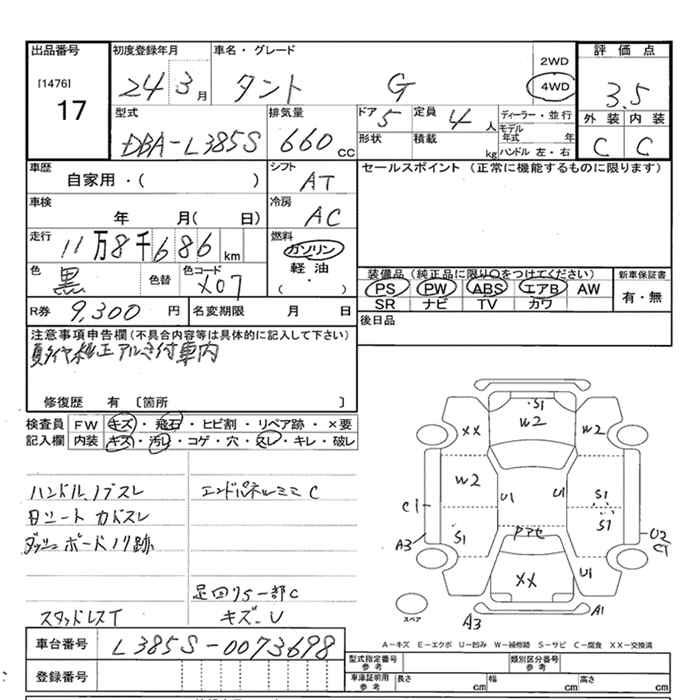 出品番号 初度登録年月 車名・グレード 2WD 評価点
[1476] 24 3月 タント G 4WD 3.5
17
型式 排気量 ドア 5 定員 4人 ディーラー・並行 外装 内装
DBA-L385S 660cc 形状 積載 kg モデル年式 年 C C
ハンドル 左・右
車歴 シフト セールスポイント (正常に機能するものに限ります)
自家用・( ) AT
車検 冷房
年 月( 日) AC
走行 燃料
11万8千686km ガソリン
軽油
色 色替 色コード ( ・ ) 装備品(純正品に限り○をつけてください) 新車保証書
黒 X07 PS PW ABS エアB AW 有・無
SR ナビ TV カワ
R券 9,300円 名変期限 月 日 後日品
注意事項申告欄(不具合内容等は具体的に記入して下さい)
夏タイヤ純正アルミ付車内
修復歴 有 〔箇所 〕
検査員 FW キズ・飛石・ヒビ割・リペア跡・×要
記入欄 内装 キズ・汚レ・コゲ・穴・スレ・キレ・破レ
ハンドルノブスレ エンドパネルミミC
日シート カドスレ
ダッシュボードノリ跡
足回り5一部C
スタッドレスT キズ-U
S1
XX W2 W2
W2 U1 U1 S1
C1 S1 S1
A3 Pアセ U2
C1
XX U1
スペア A3 A1
A-キズ E-エクボ U-凹み W-補修跡 S-サビ C-腐食 XX-交換済
車台番号 L385S-0073698
登録番号
型式指定番号 参考 類別区分番号 参考
車庫証明用 参考 長さ cm 幅 cm 高さ cm